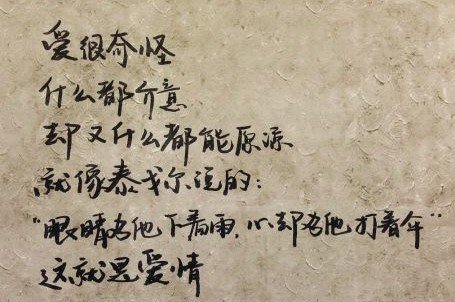 爱很奇怪
什么都介意
却又什么都能原凉
就像泰戈尔说的：
“眼睛为他下着雨，心却为他打着伞”
这就是爱情